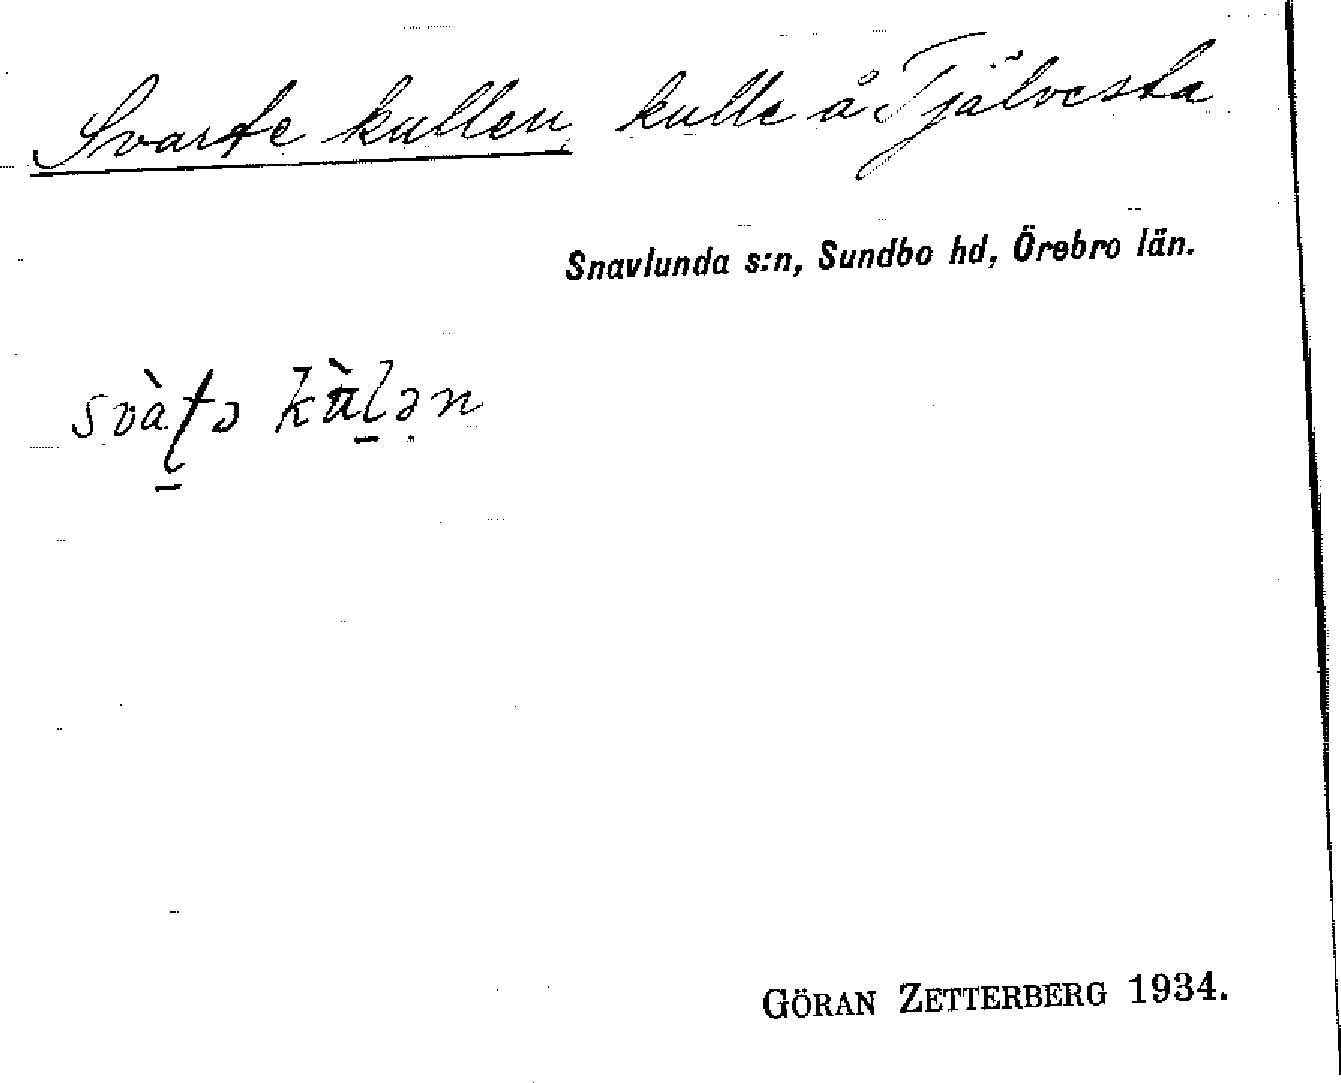 Svarte kullen kulle å Tjälvesta
Snavlunda s:n, Sundbo hd, Örebro län.
svàʈə kàlən
GÖRAN ZETTERBERG 1934.